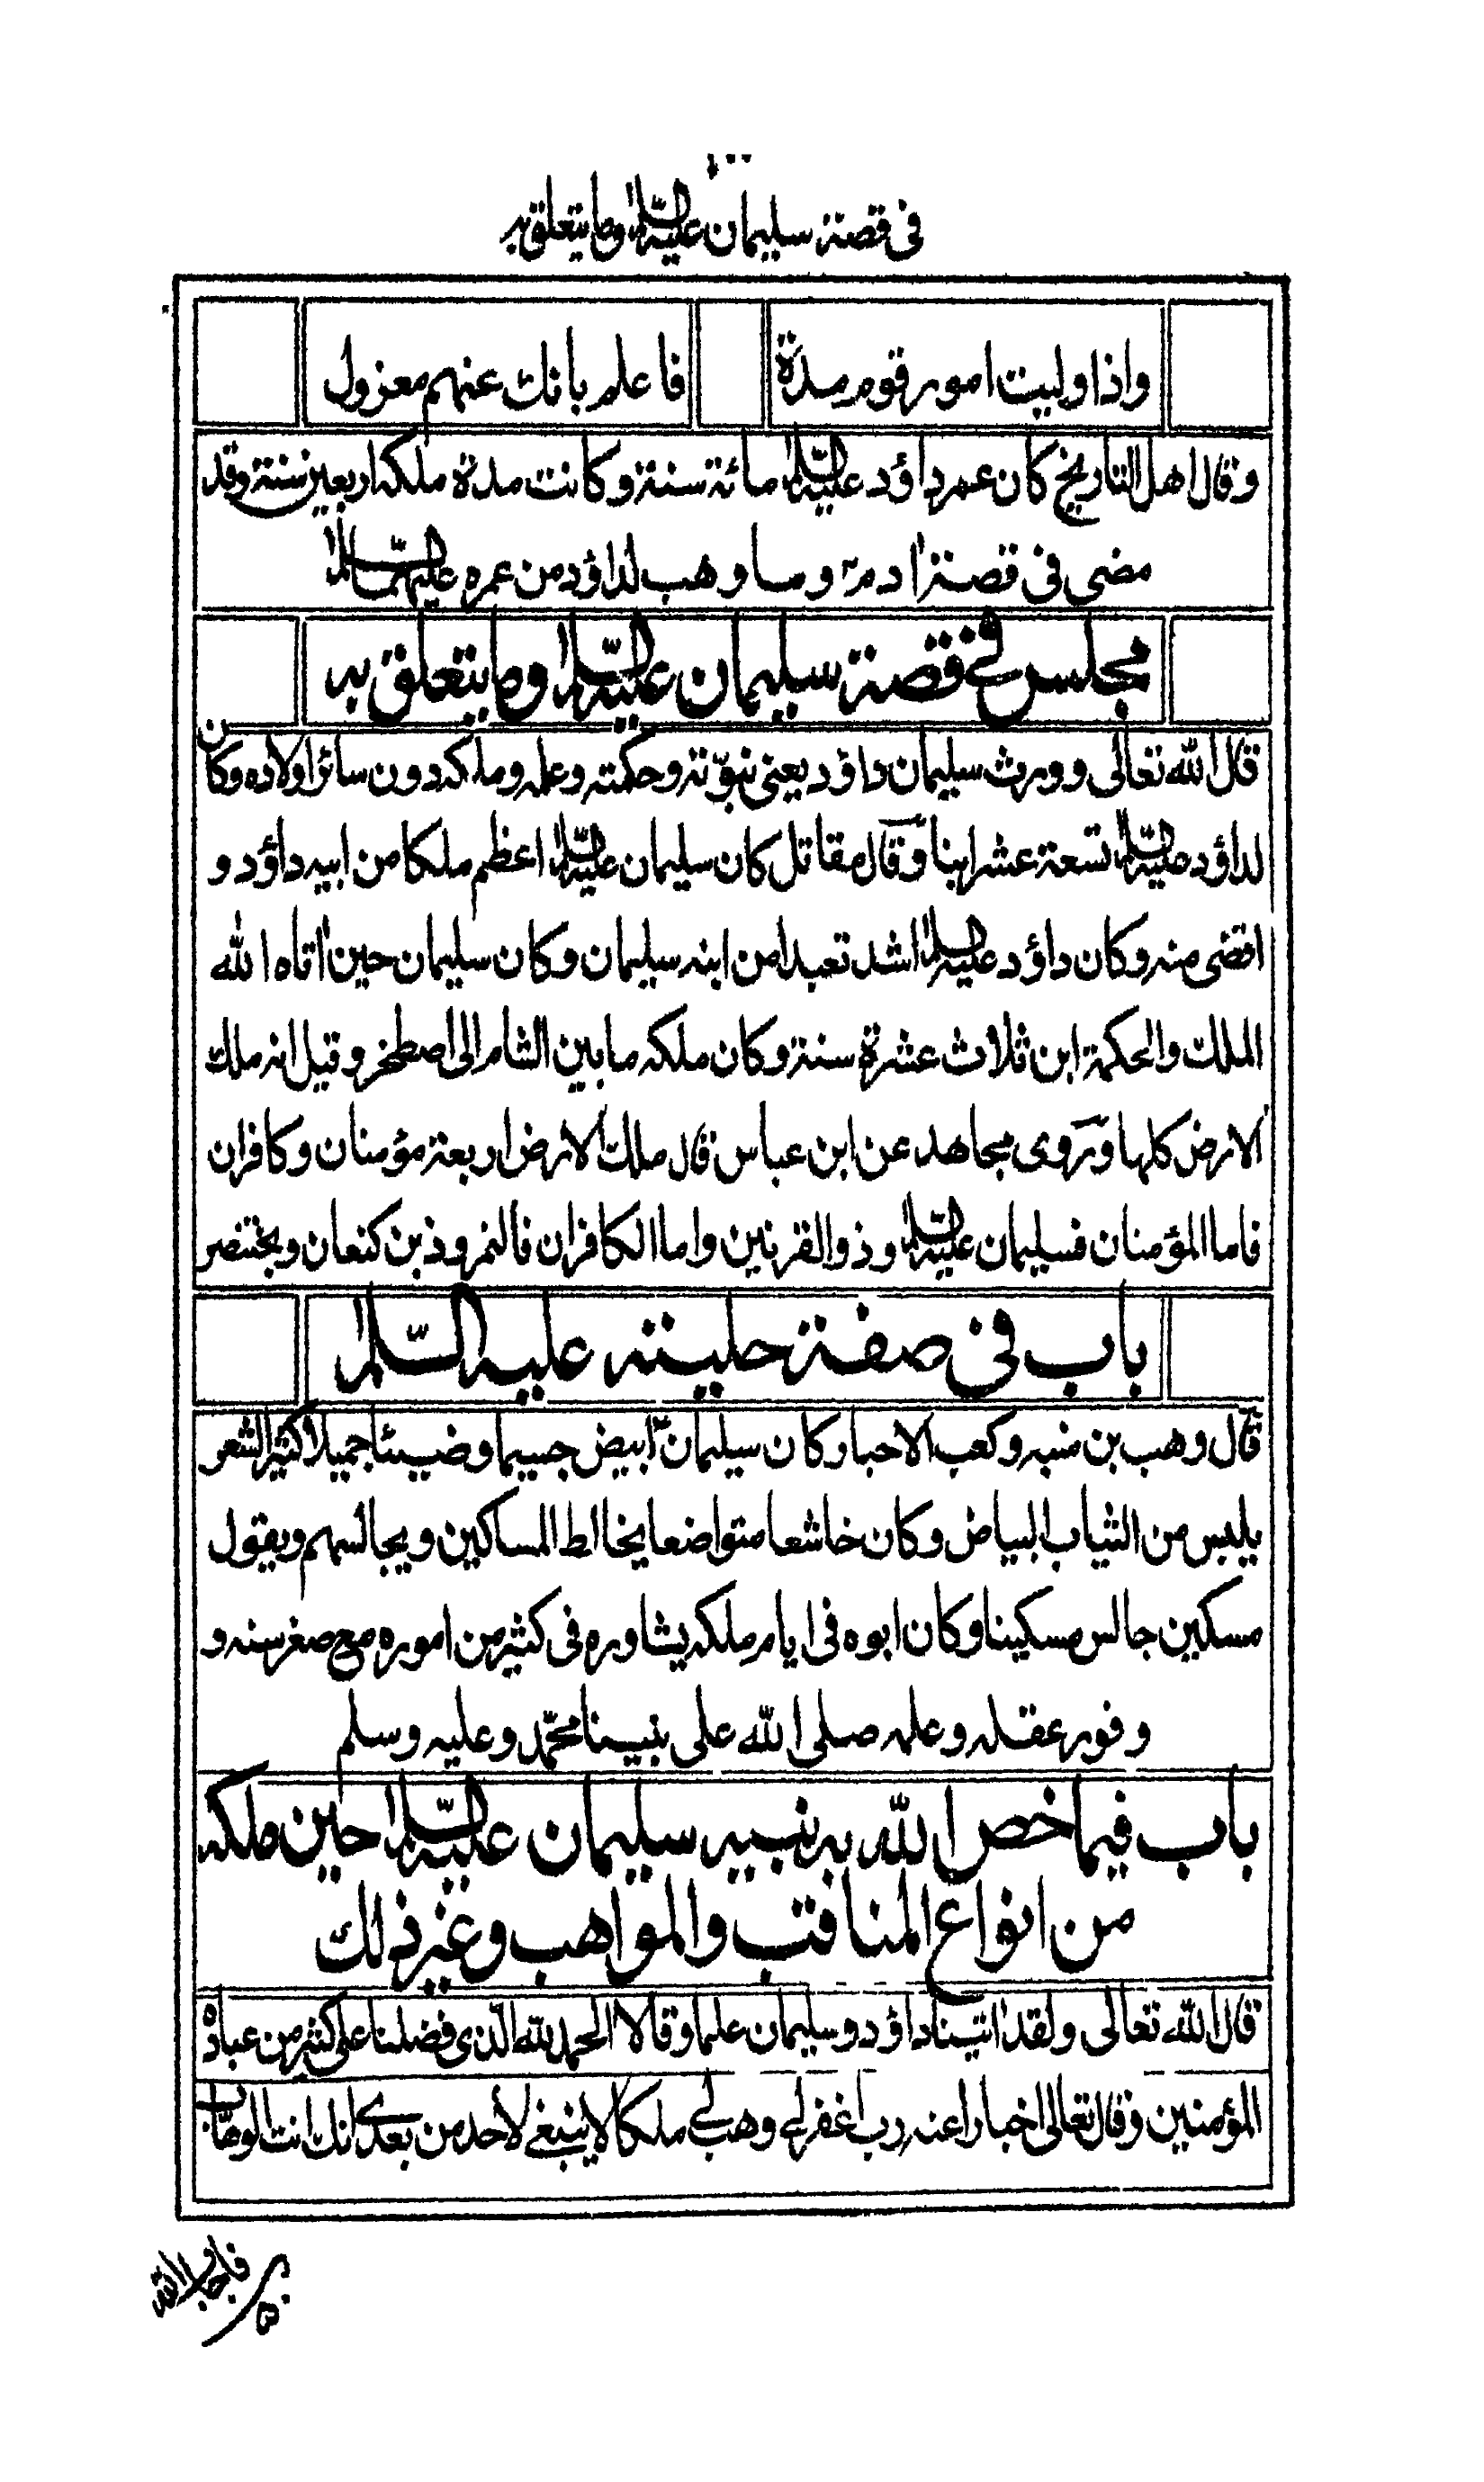 فى قصة سليمان عليه السلام وما يتعلق به
واذا وليت امور قوم مدة فاعلم بانك عنهم معزول
وقال اهل التاريخ كان عمر داؤد عليه السلام مائة سنة وكانت مدة ملكه اربعين سنة وقد
مضى فى قصة اٰدم ؑ وما وهب لداؤد من عمره عليهما السلام
مجلس فى قصة سليمان عليه السلام وما يتعلق به
قال الله تعالى وورث سليمان داؤد يعنى نبوّته وحكمته وعلمه وملكه دون سائر اولاده وكان
لداؤد عليه السلام تسعة عشر ابنا وقال مقاتل كان سليمان عليه السلام اعظم ملكا من ابيه داؤد و
اقضى منه وكان داؤد عليه السلام اشد تعبدا من ابنه سليمان وكان سليمان حين اٰتاه الله
الملك والحكمة ابن ثلاث عشرة سنة وكان ملكه ما بين الشام الى اصطخر وقيل انه ملك
الارض كلها وروى مجاهد عن ابن عباس قال ملك الارض اربعة مؤمنان وكافران
فاما المؤمنان فسليمان عليه السلام وذو القرنين واما الكافران فالنمروذ بن كنعان وبختنصر
باب فى صفة حليته عليه السّلام
قال وهب بن منبه وكعب الاحبار كان سليمان ؑ ابيض جسيما وضيئا جميلا كثير الشعر
يلبس من الثياب البياض وكان خاشعا متواضعا يخالط المساكين ويجالسهم ويقول
مسكين جالس مسكينا وكان ابوه فى ايام ملكه يشاوره فى كثير من اموره مع صغر سنه و
وفور عقله وعلمه صلى الله على نبينا محمّد وعليه وسلم
باب فيما خص الله به نبيه سليمان عليه السّلام حين ملكه
من انواع المناقب والمواهب وغير ذلك
قال الله تعالى ولقد اٰتينا داؤد وسليمان علما وقالا الحمد لله الّذى فضلنا على كثير من عباده
المؤمنين وقال تعالى اخبارا عنه رب اغفر لى وهب لى ملكا لا ينبغى لاحد من بعدى انك انت الوهّاب
فاجاب الله